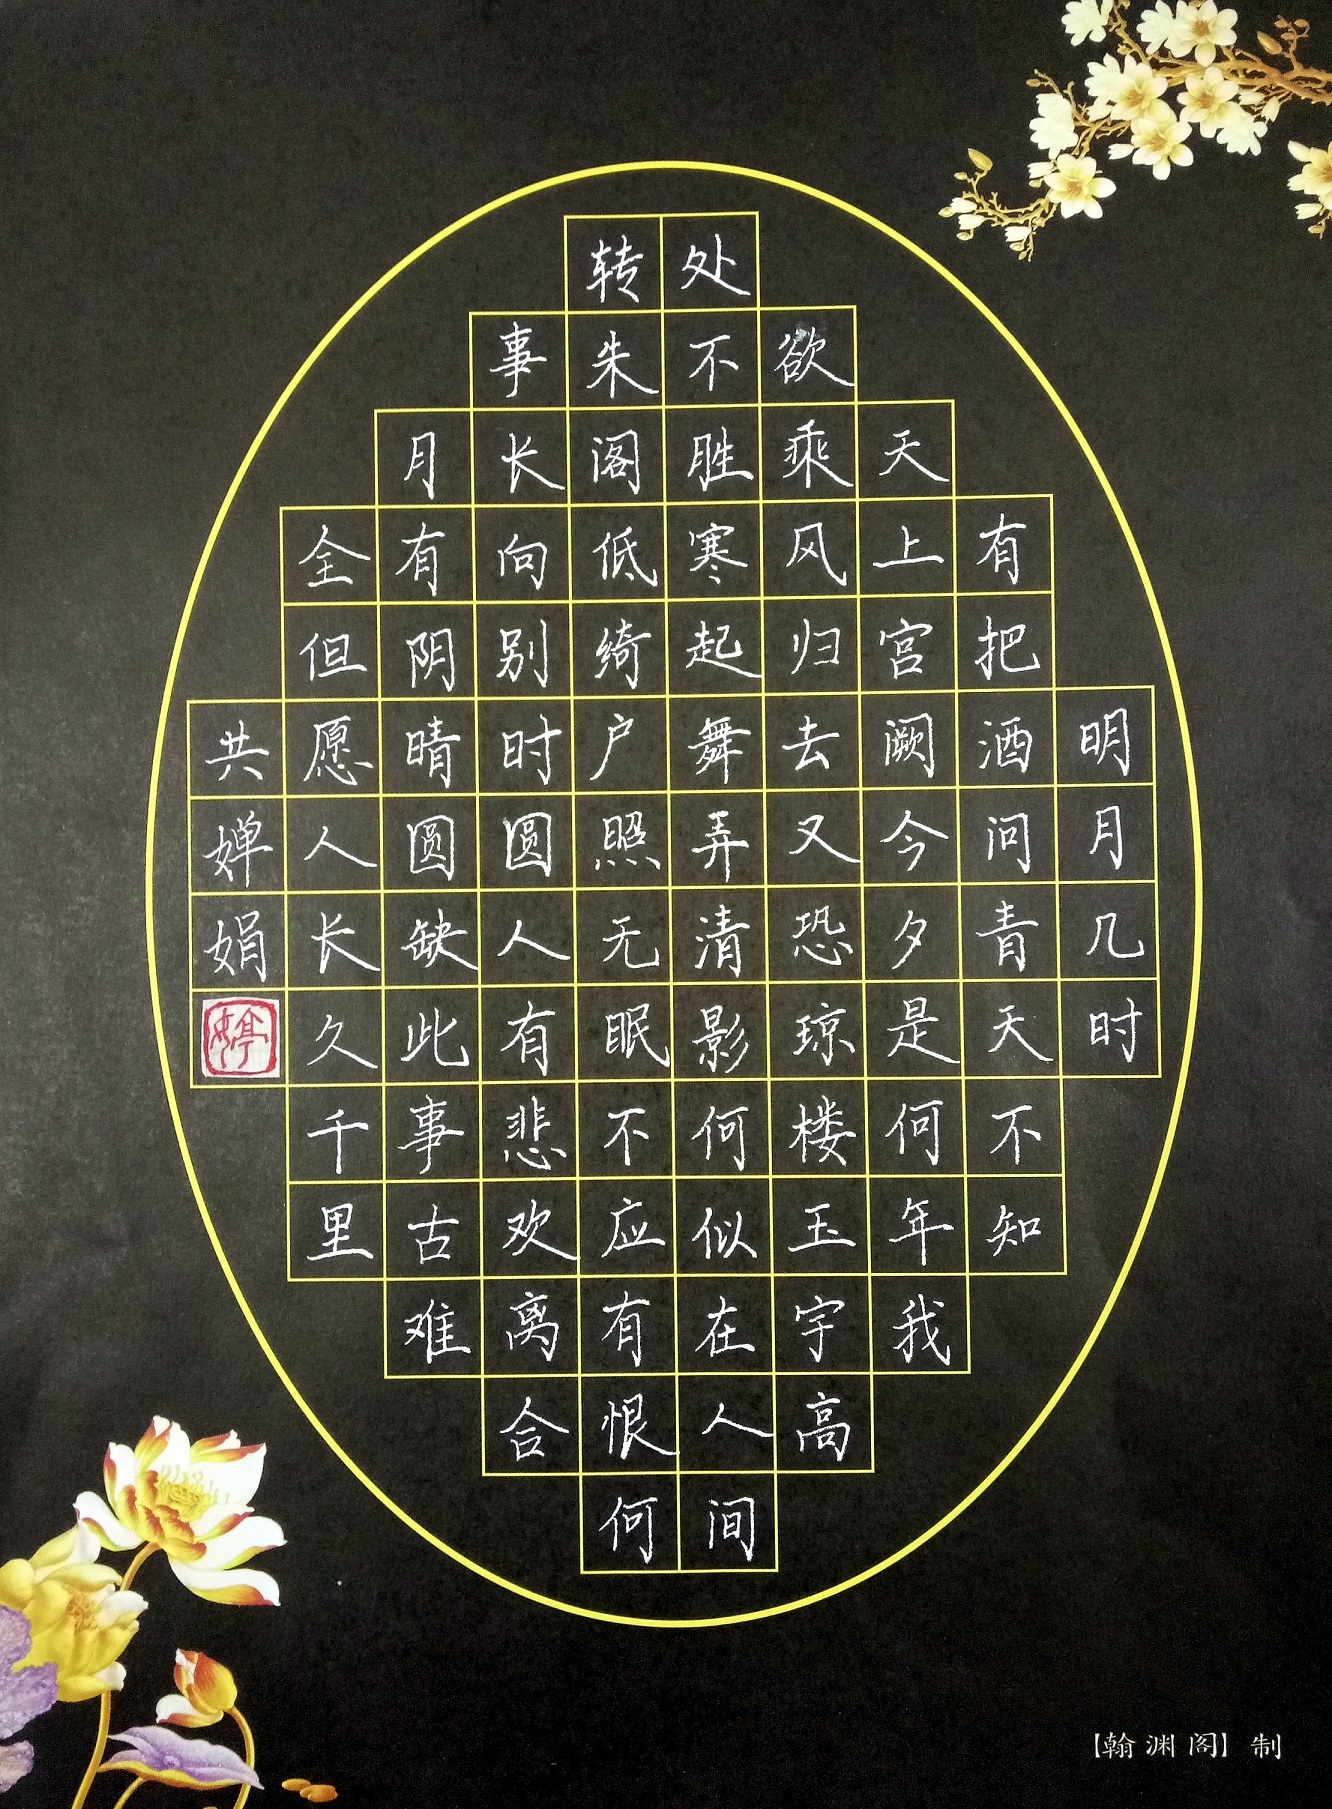 明月几时
有把酒问青天不知
天上宫阙今夕是何年我
欲乘风归去又恐琼楼玉宇高
处不胜寒起舞弄清影何似在人间
转朱阁低绮户照无眠不应有恨何
事长向别时圆人有悲欢离合
月有阴晴圆缺此事古难
全但愿人长久千里
共婵娟
婷
【翰渊阁】制